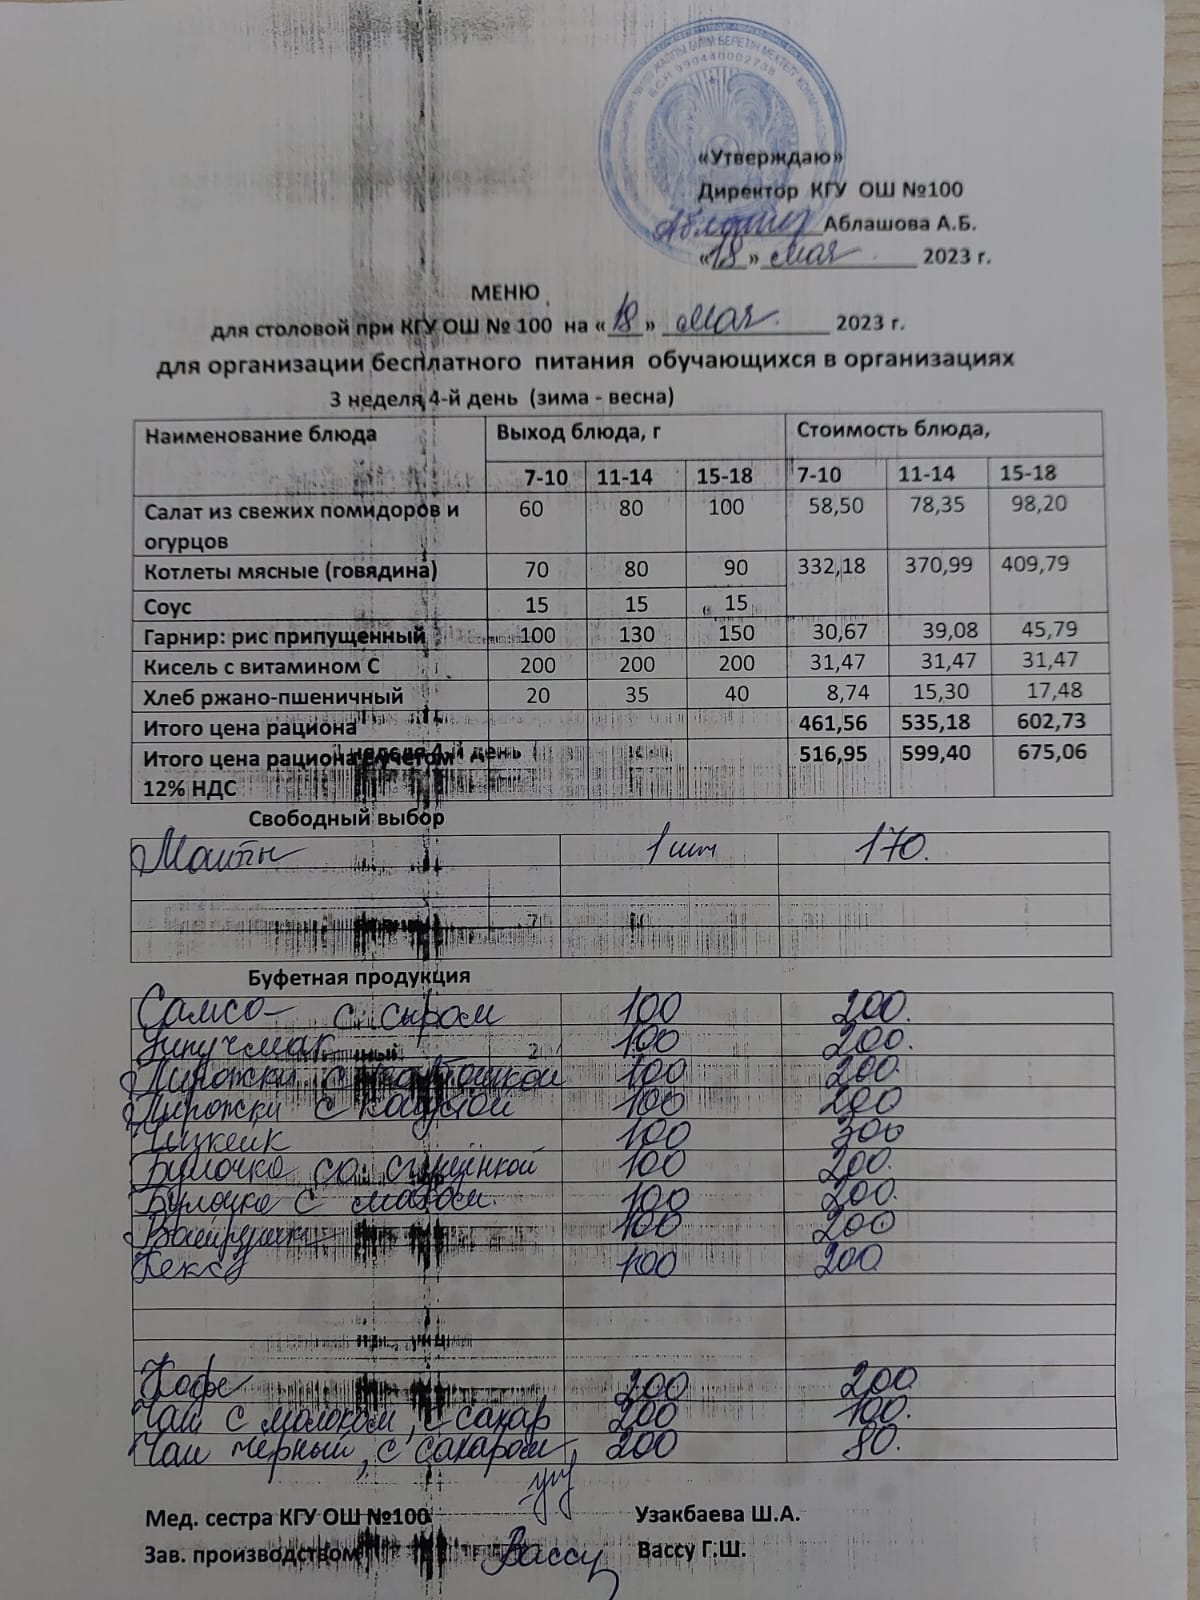 ЖАЛПЫ БІЛІМ БЕРЕТІН МЕКТЕП
БСН 990440002738
«Утверждаю»
Директор КГУ ОШ №100
Аблашова А.Б.
«18» мая 2023 г.
МЕНЮ
для столовой при КГУ ОШ № 100 на «18» мая 2023 г.
для организации бесплатного питания обучающихся в организациях
3 неделя 4-й день (зима - весна)
Наименование блюда Выход блюда, г Стоимость блюда,
7-10 11-14 15-18 7-10 11-14 15-18
Салат из свежих помидоров и огурцов 60 80 100 58,50 78,35 98,20
Котлеты мясные (говядина) 70 80 90 332,18 370,99 409,79
Соус 15 15 15
Гарнир: рис припущенный 100 130 150 30,67 39,08 45,79
Кисель с витамином С 200 200 200 31,47 31,47 31,47
Хлеб ржано-пшеничный 20 35 40 8,74 15,30 17,48
Итого цена рациона 461,56 535,18 602,73
Итого цена рациона с учетом 12% НДС 516,95 599,40 675,06
неделя 4-й день
Свободный выбор
1 шт 170.
Буфетная продукция
Самсо- с сыром 100 200.
100 200.
Пирожки с картошкой 100 200.
Пирожки с капустой 100 200
Чизкейк 100 300
Булочка со сгущенкой 100 200.
Булочка с маком. 100 200.
100 200
Кексы 100 200
Кофе 200 200
Чай с молоком, с сахар 200 100.
Чай черный, с сахаром 200 80.
Мед. сестра КГУ ОШ №100 Узакбаева Ш.А.
Зав. производством Вассу Вассу Г.Ш.